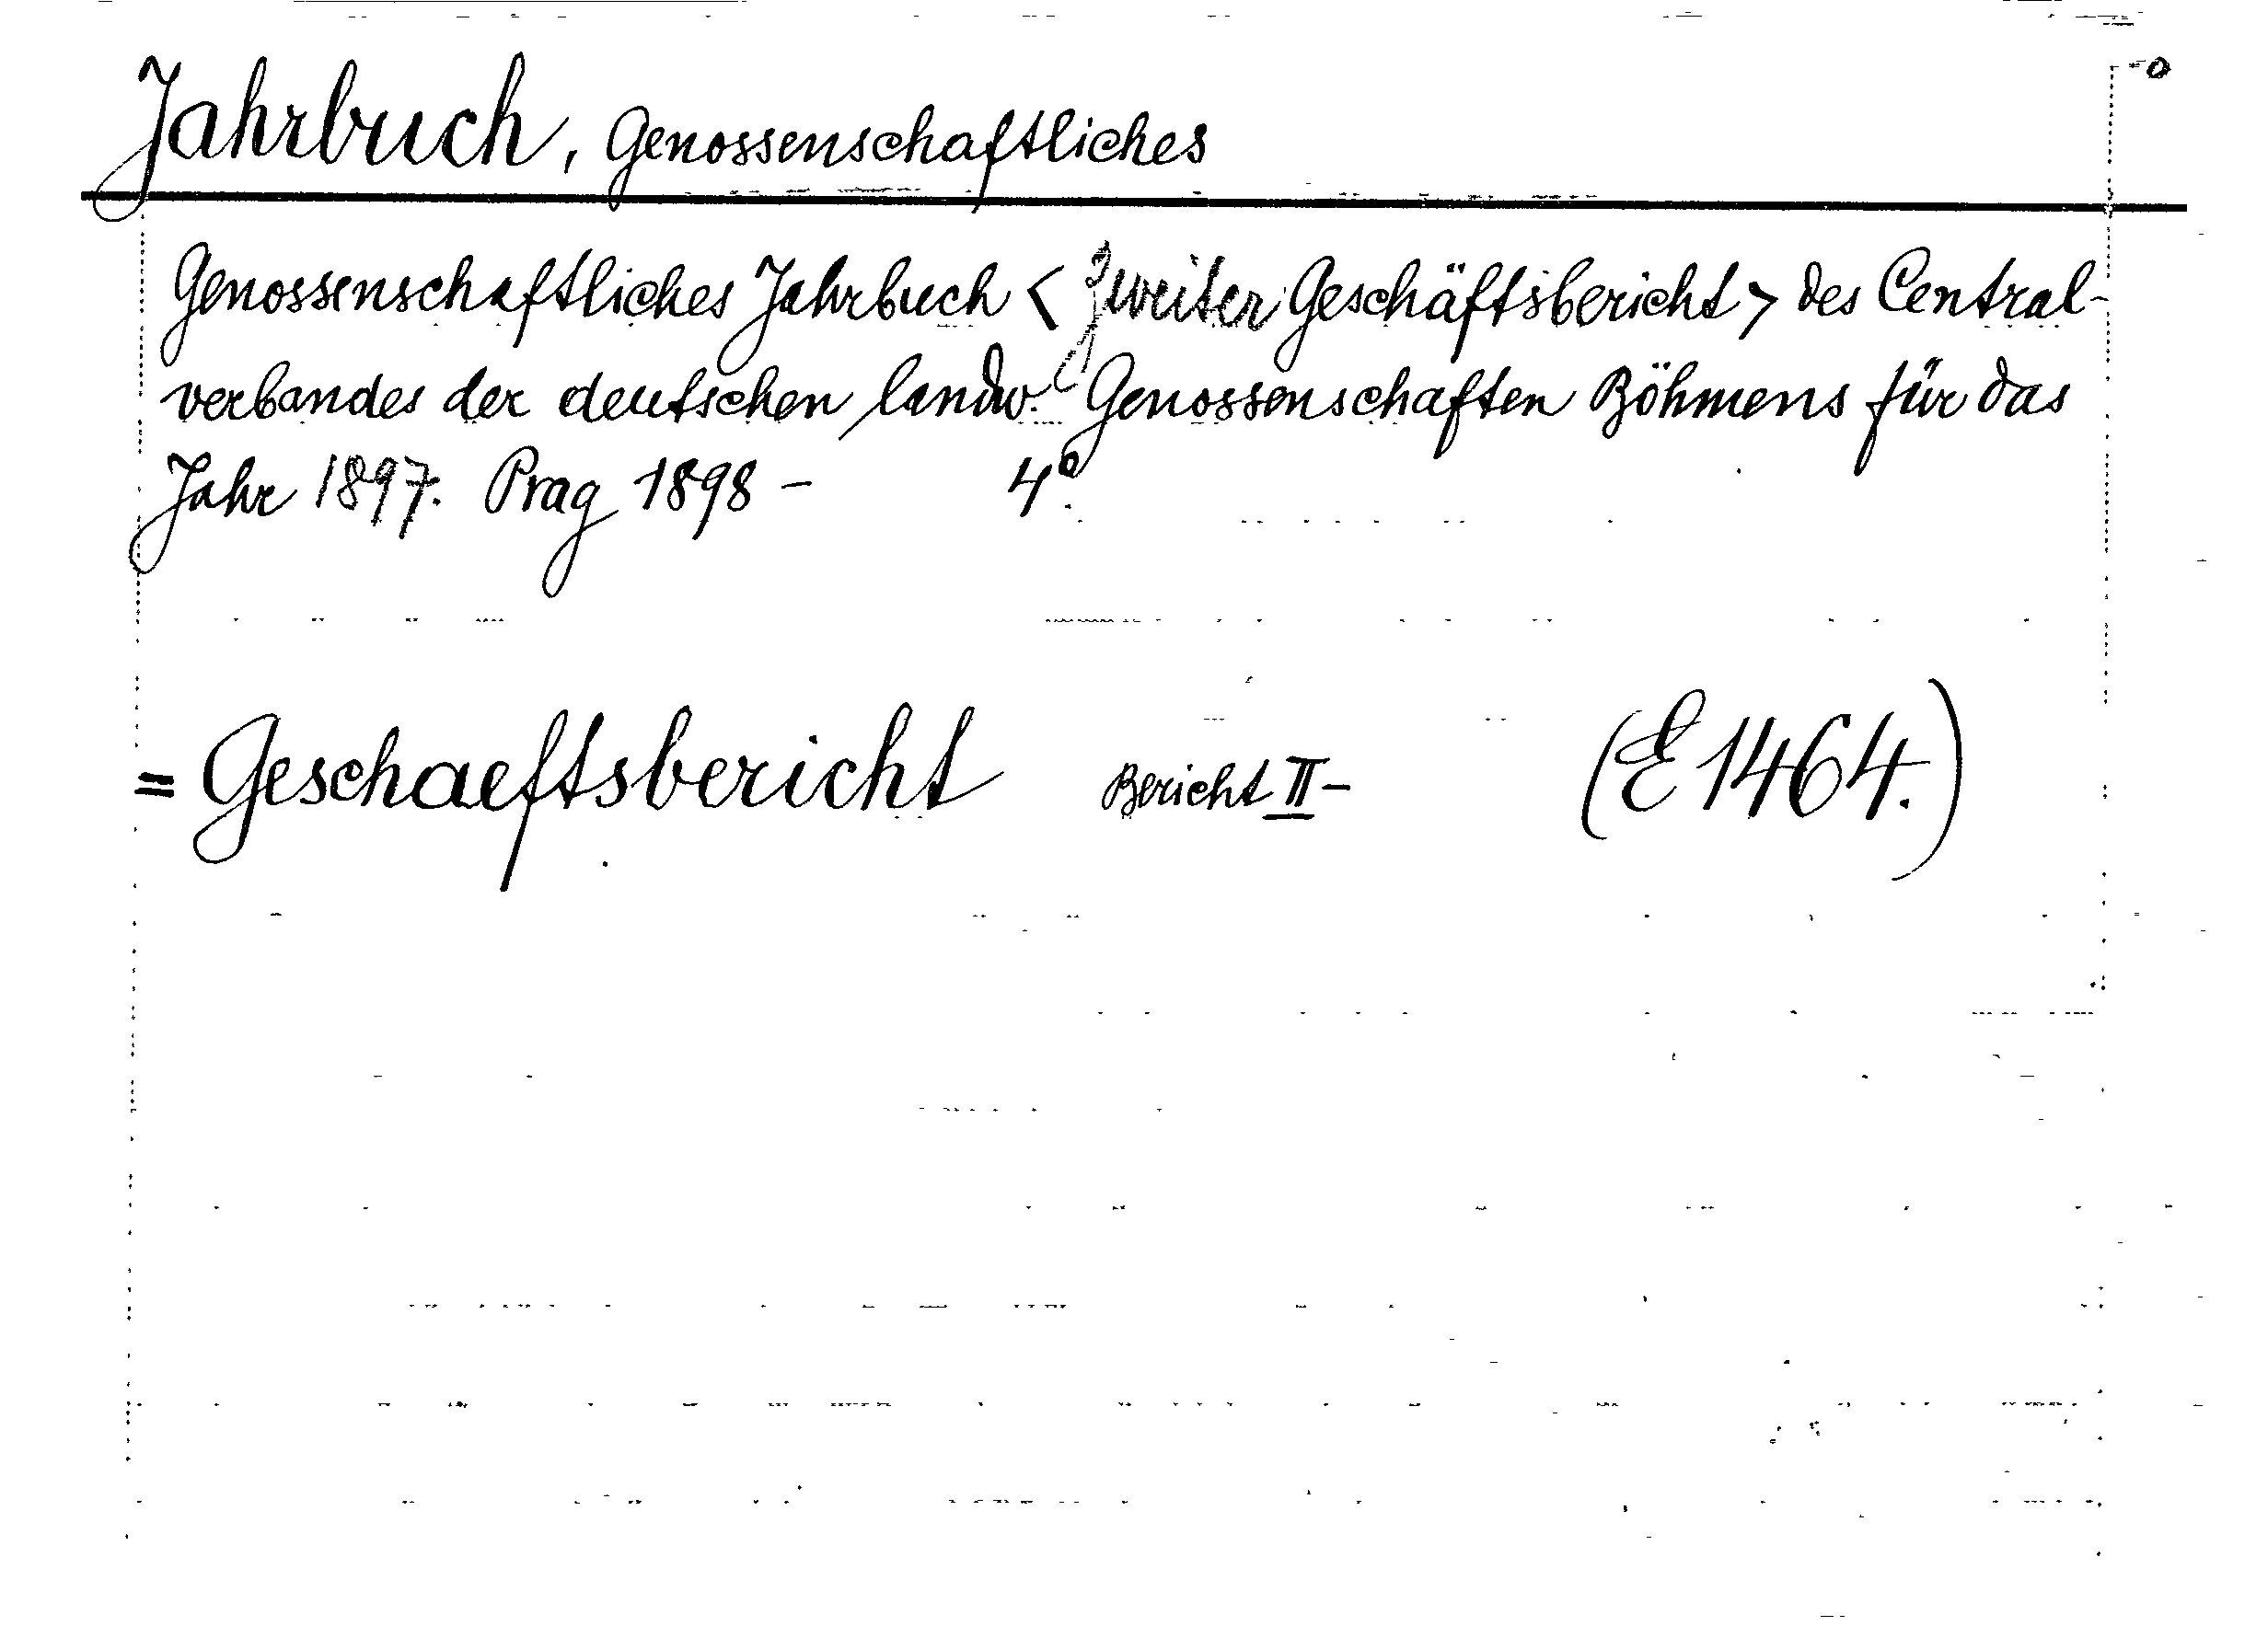 Jahrbuch, Genossenschaftliches
Genossenschaftliches Jahrbuch < Zweiter Geschäftsbericht > des Central-
verbandes der deutschen landw. Genossenschaften Böhmens für das
Jahr 1897. Prag 1898 - 4º.
= Geschaeftsbericht Bericht II - (E 1464.)